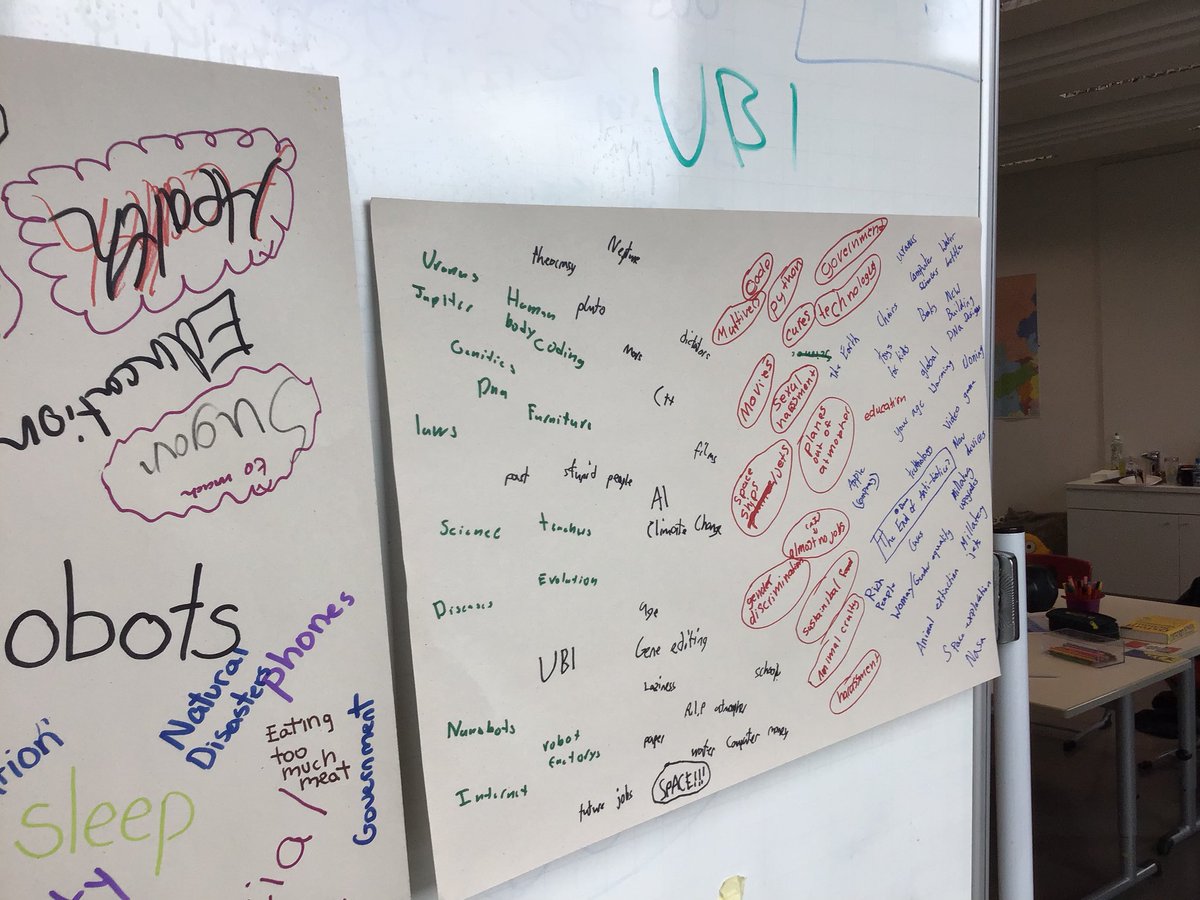 UBI
Health
Education
Sugar
to much
obots
phones
Natural
Disasters
Eating
too
much
meat
Government
sleep
Uranus
Jupiter
Human
body
coding
Genitics
Dna
Furniture
laws
Science
Evolution
Diseases
Nanobots
robot
factorys
Internet
theocrasy
Neptune
pluto
Mars
dictators
C++
films
past
stupid people
AI
Climate Change
age
UBI
Gene editing
Laziness
school
R.I.P atmopher
paper
water Computer money
future jobs
SPACE!!!
code
Multivers
python
government
cures
technology
Movies
sexual
harassment
planes
out of
atmopher
education
space
ships
/Jets
(AI)
almost no jobs
gender
discrimination
sustainibal food
Animal crulty
harassment
uranus
Computer
Water
bottle
Chairs
Beds
New
Building
The Earth
toys
for kids
global
warming
cloning
your age
Video game
New
devices
Apple
(company)
The End of Anti-biotics?
Millatary
upgrades
Cars
Rich
People
Woman/Gender equality
Millatary
jets
Animal extinction
Space exploration
Nasa